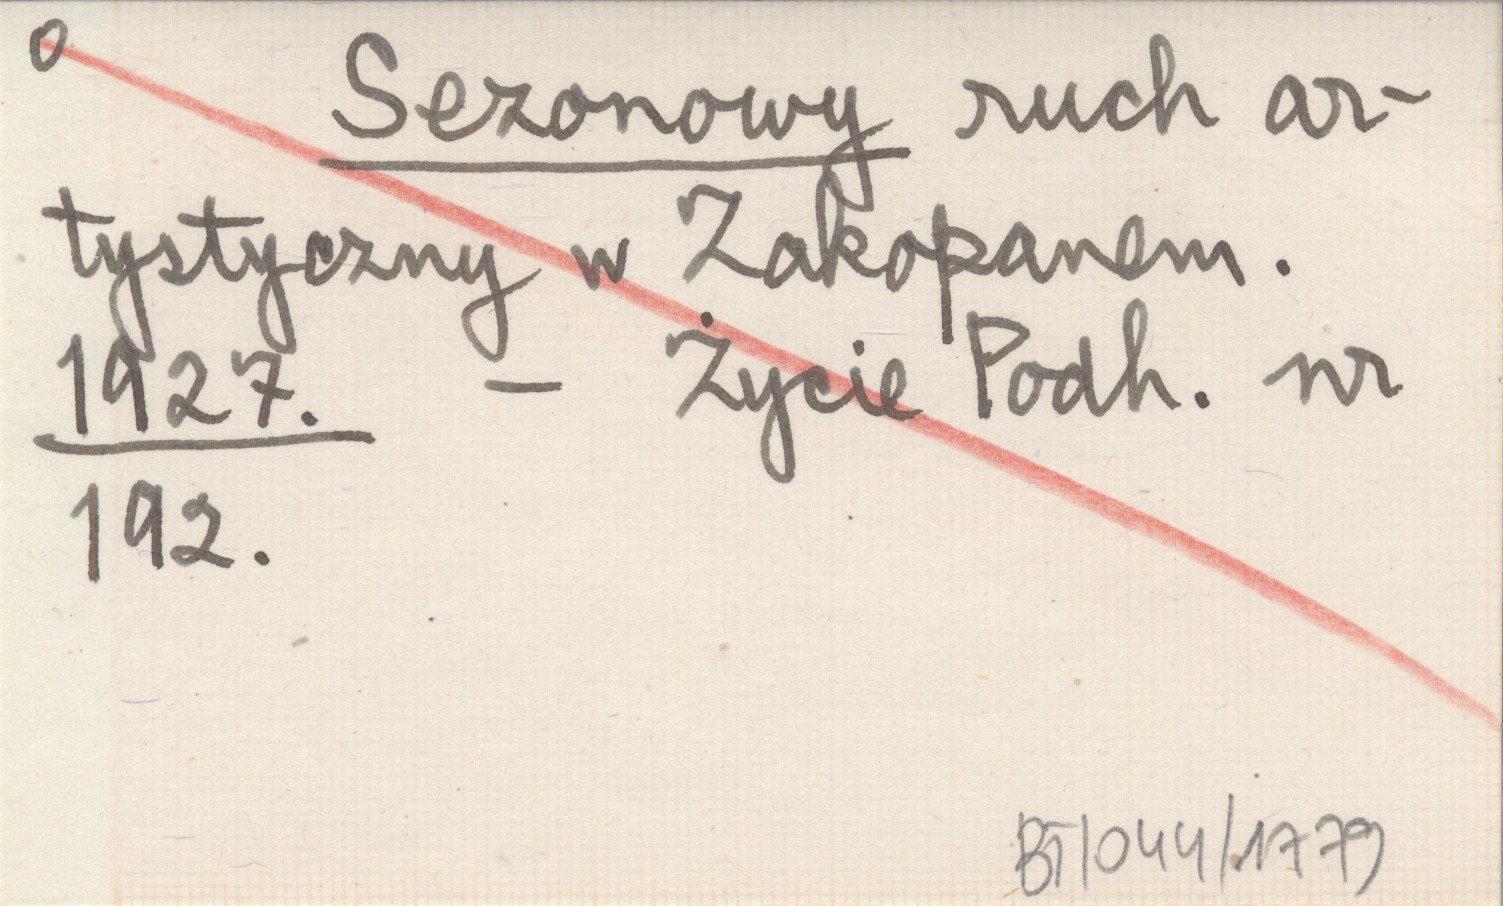 o
Sezonowy ruch ar-
tystyczny w Zakopanem.
1927. – Życie Podh. nr
192.
BT/044/1779